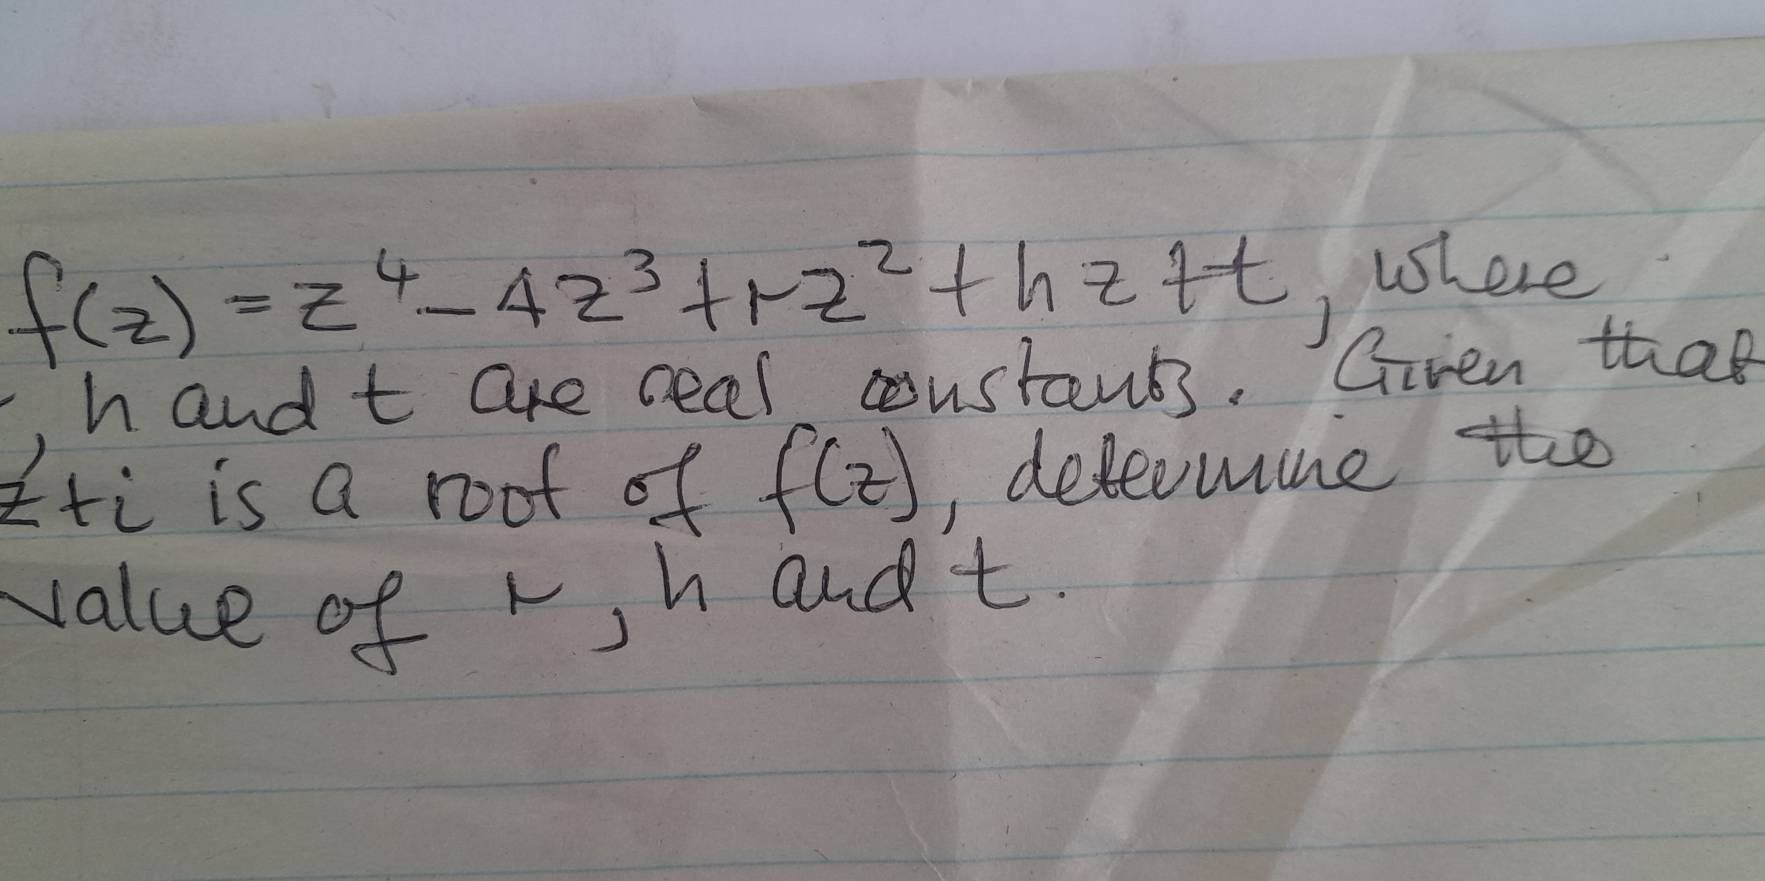 f(z) = z⁴ - 4z³ + rz² + hz + t, where
, h and t are real constants. Given that
z+i is a root of f(z), determine the
value of r, h and t.